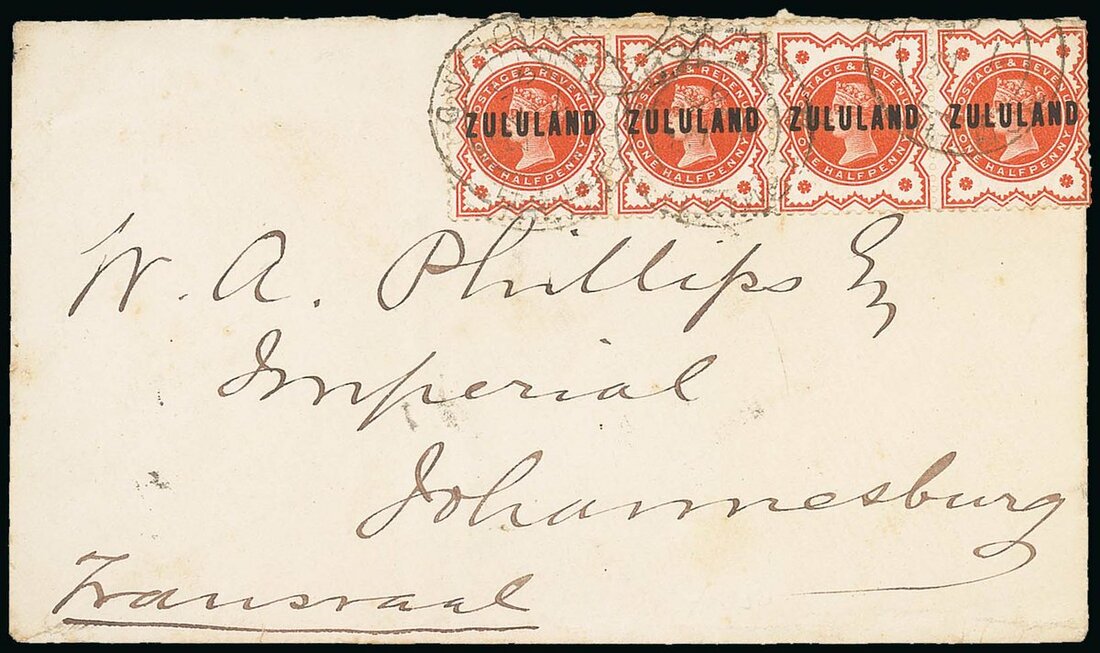 POSTAGE & REVENUE POSTAGE & REVENUE POSTAGE & REVENUE POSTAGE & REVENUE
ZULULAND ZULULAND ZULULAND ZULULAND
ONE HALFPENNY ONE HALFPENNY ONE HALFPENNY ONE HALFPENNY
W. A. Phillips Esq
Imperial
Johannesburg
Transvaal